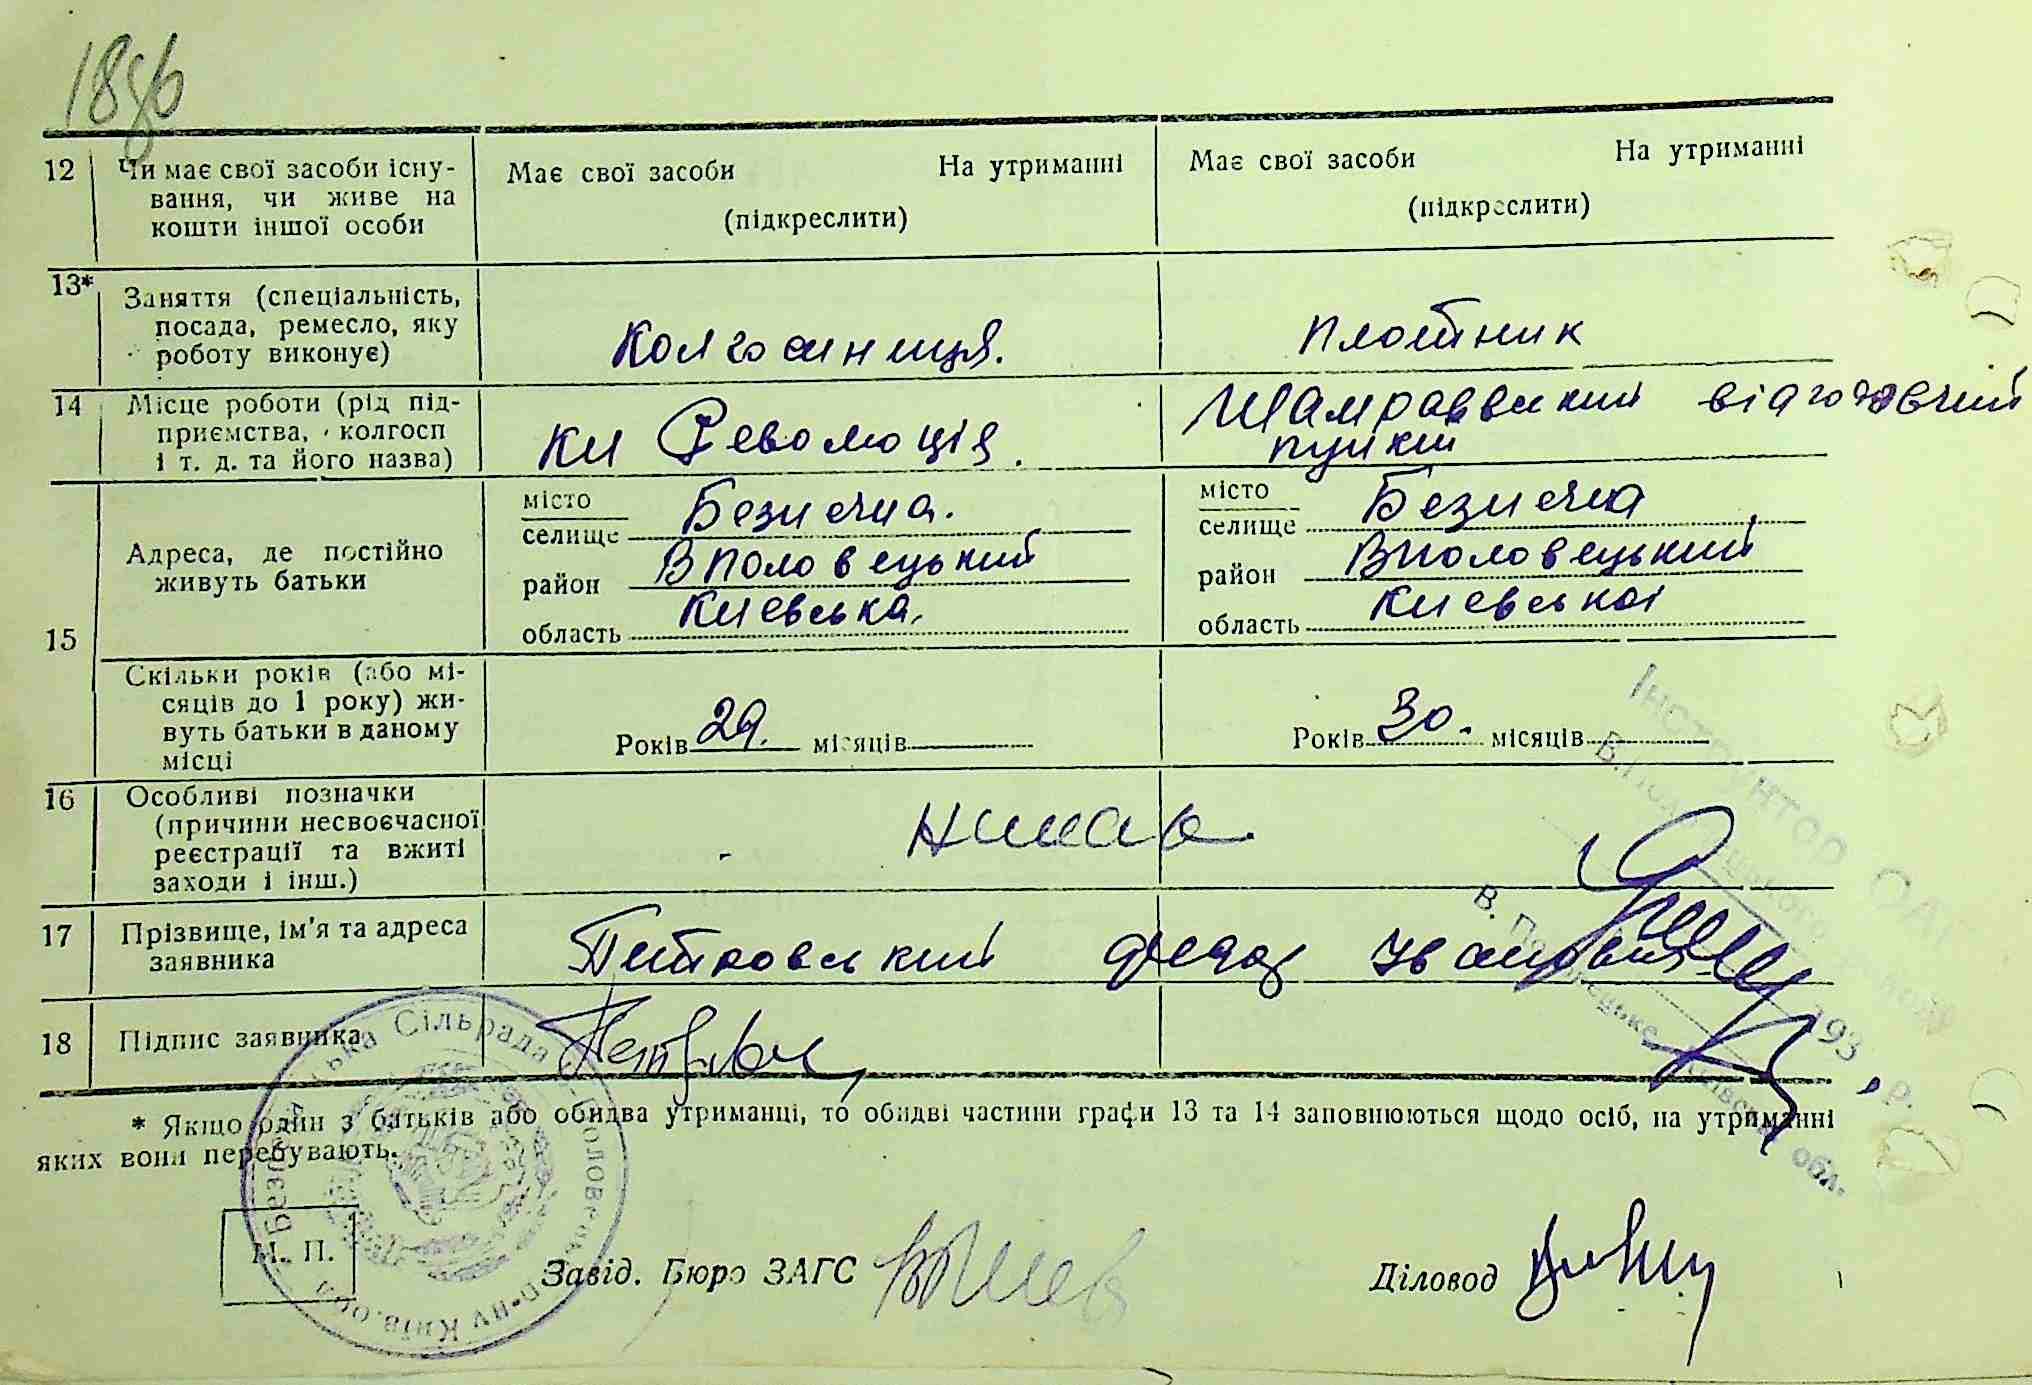 12 Чи має свої засоби існу-
вання, чи живе на
кошти іншої особи
Має свої засоби На утриманні
(підкреслити)
Має свої засоби На утриманні
(підкреслити)
13* Заняття (спеціальність,
посада, ремесло, яку
роботу виконує)
Колгоспниця.
плотник
14 Місце роботи (рід під-
приємства, колгосп
і т. д. та його назва)
Революція.
Шамраєвський відгодовчий
пункт
15 Адреса, де постійно
живуть батьки
місто
селище Безпечна.
район Вполовецький
область Киевська.
місто
селище Безпечна
район Вполовецький
область Киевська
Скільки років (або мі-
сяців до 1 року) жи-
вуть батьки в даному
місці
Років 29. місяців
Років 30. місяців
16 Особливі позначки
(причини несвоєчасної
реєстрації та вжиті
заходи і інш.)
17 Прізвище, ім'я та адреса
заявника
18 Підпис заявника
* Якщо один з батьків або обидва утриманці, то обидві частини графи 13 та 14 заповнюються щодо осіб, на утриманні
яких вони перебувають.
М. П.
Завід. Бюро ЗАГС
Діловод